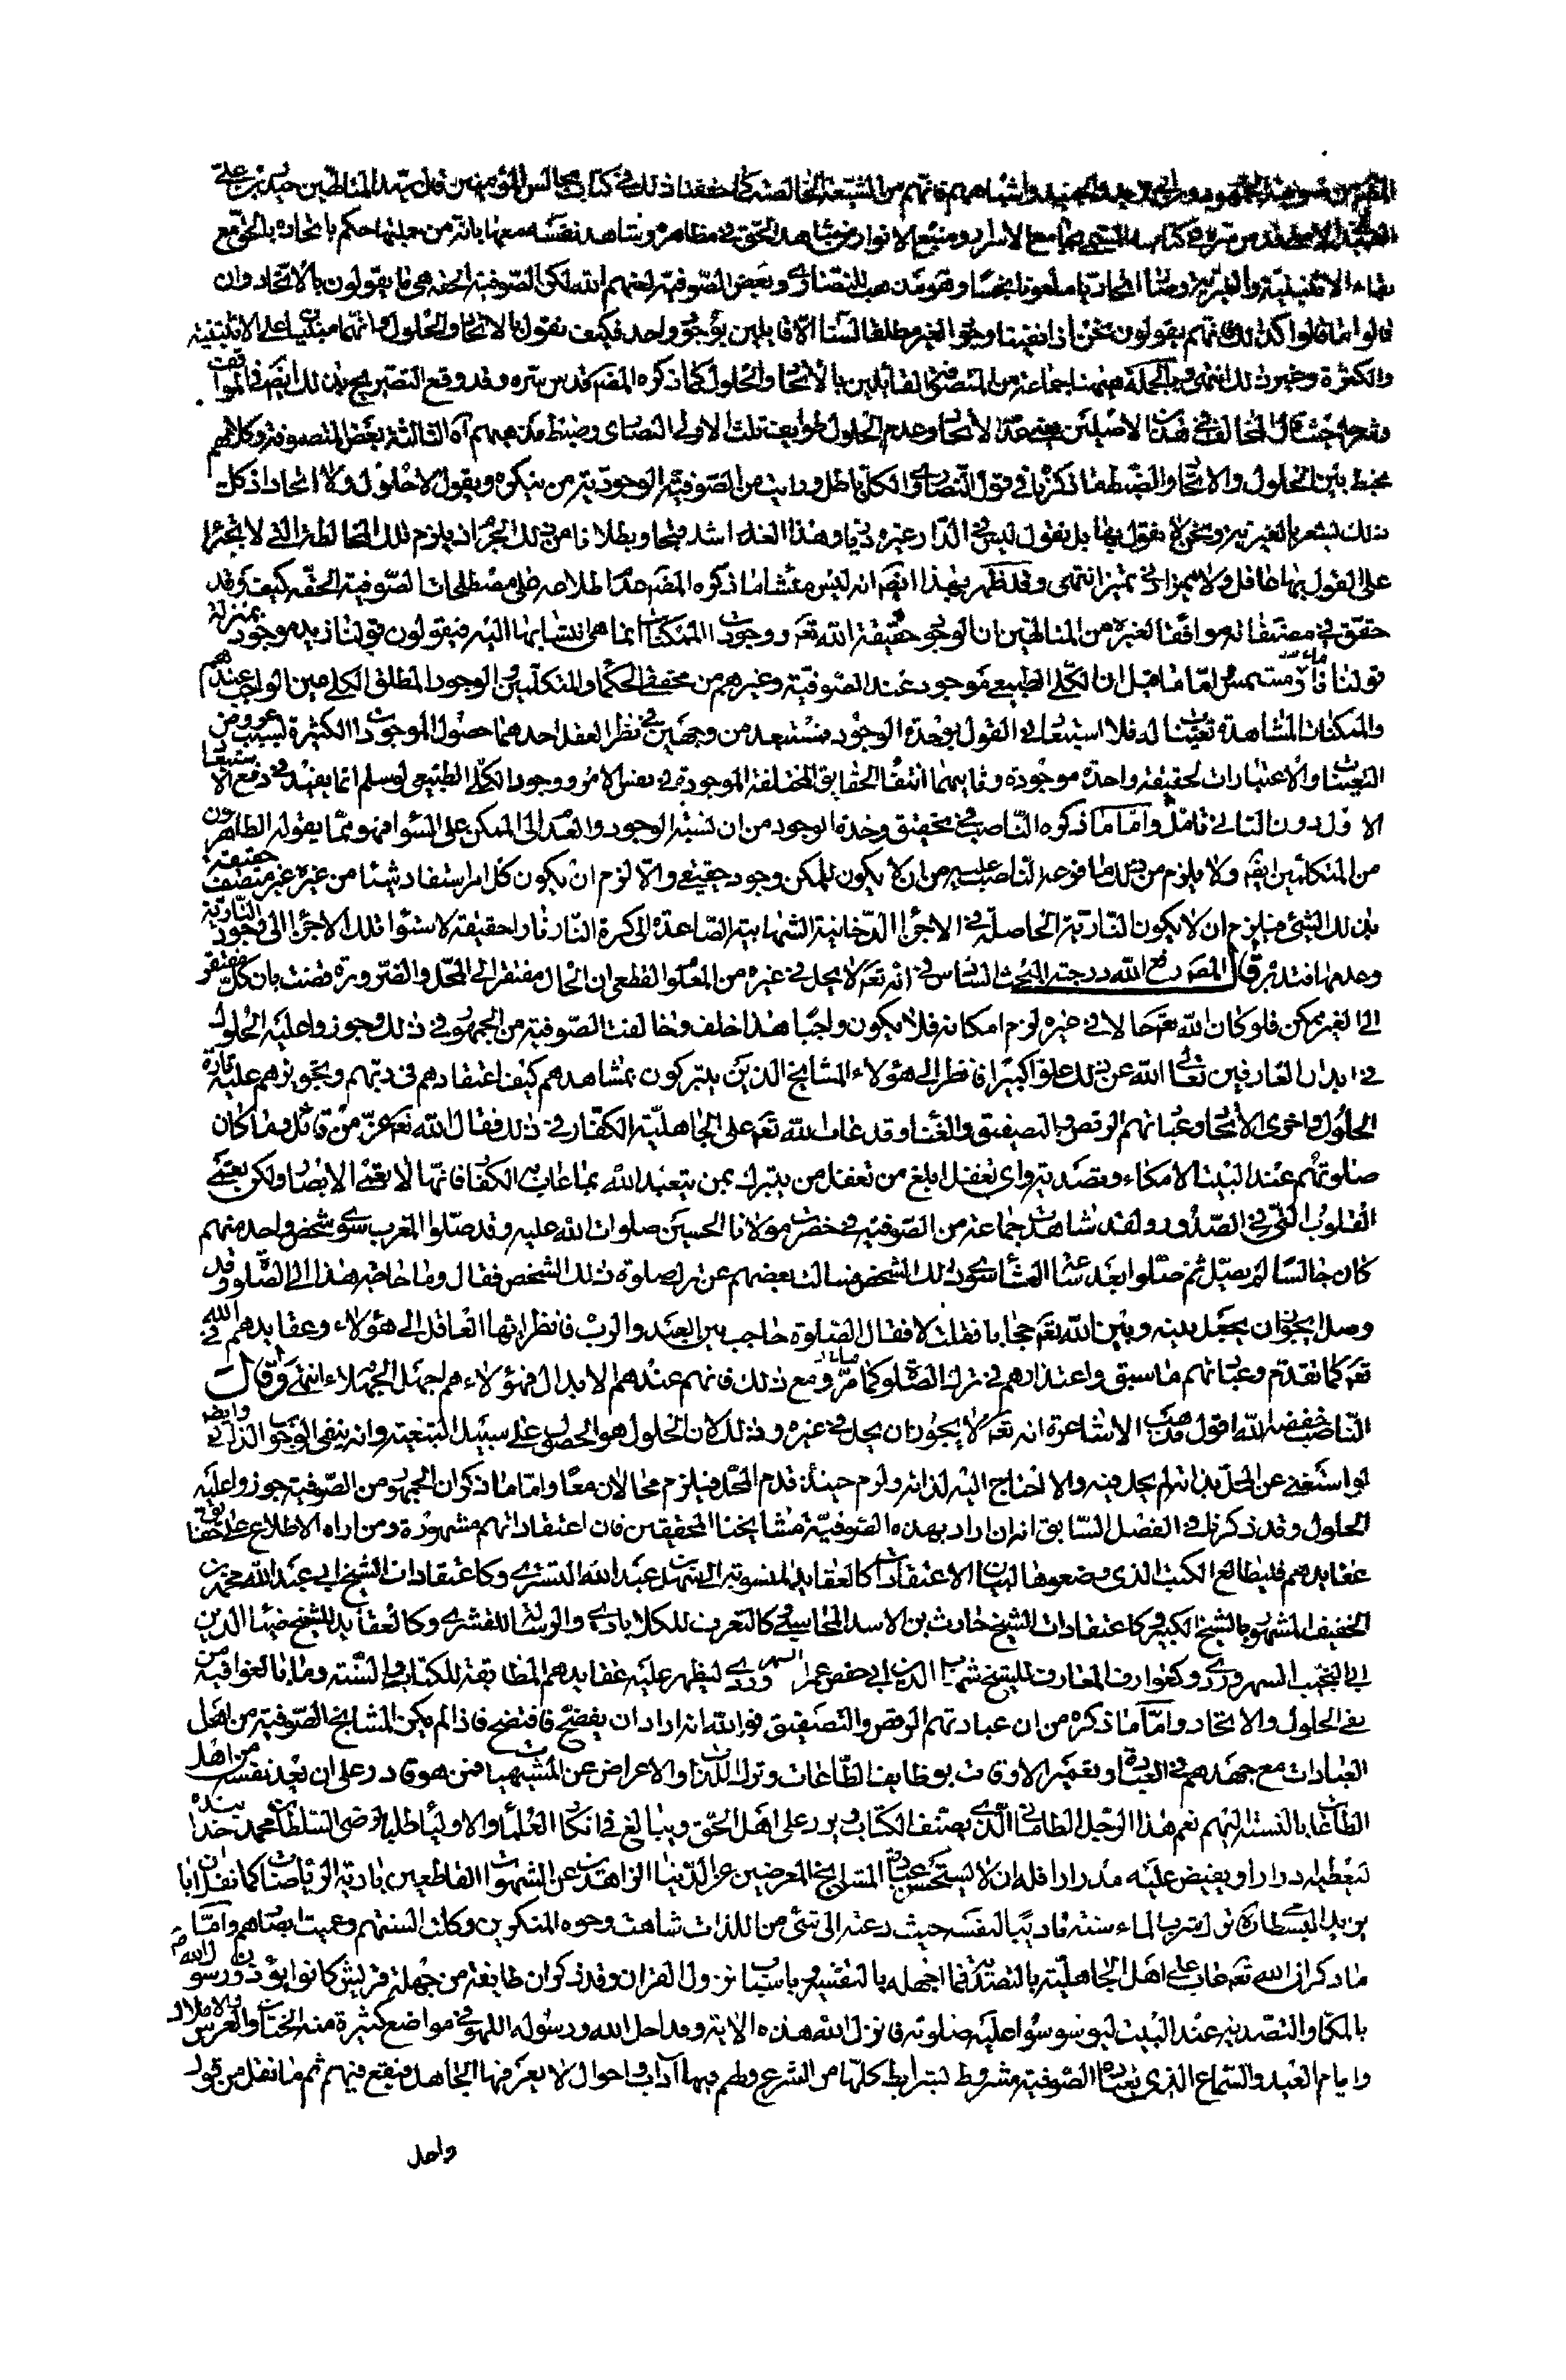 المتقدمين من صوفية الجمهور وابي يزيد والجنيد واشباههم فانهم من الشيعة الخالصة كما حققنا ذلك في كتاب مجالس المؤمنين قال سيد المتالهين حيدر بن علي
قدس سره في كتابه المسمى بجامع الاسرار ومنبع الانوار من شاهد الحق في مظاهره وشاهد نفسه معها بانه من جملتها حكم باتحاده بالحق مع
بقاء الاثنينية والغيرية وصار اتحاديا ملعونا نجسا وهو مذهب النصارى وبعض الصوفية لعنهم الله لكن الصوفية الحقة ما يقولون بالاتحاد وان
قالوا ما قالوا كذلك فانهم يقولون نحن اذا نفينا وجود الغير مطلقا لسنا الا قايلين بوجود واحد فكيف نقول بالاتحاد والحلول فانهما مبنيان على الاثنينية
والكثرة وغير ذلك انتهى وبالجملة ههنا جماعة من المتصوفة القائلين بالاتحاد والحلول كما ذكره المصه قدس سره وقد وقع التصريح بذلك ايضه في المواقف
وشرحه حيث قال المخالف في هذين الاصلين يعني عدم الاتحاد وعدم الحلول طوايف ثلث الاولى النصارى وضبط مذهبهم آه الثالثة بعض المتصوفة وكلامهم
مخبط بين الحلول والاتحاد والضبط ما ذكرناه في قول النصارى والكل باطل ورايت من الصوفية الوجودية من ينكره ويقول لا حلول ولا اتحاد اذ كل
ذلك يشعر بالغيرية ونحن لا نقول بها بل نقول ليس في الدار غيره ديار وهذا العذر اشد قبحا وبطلانا من ذلك الجرم اذ يلزم تلك المخالطة التي لا يجترأ
على القول بها عاقل ولا مميز ادنى تميز انتهى وقد ظهر بهذا ايضه انه ليس منشا ما ذكره المصه عدم اطلاعه على مصطلحات الصوفية الحقة كيف وقد
حقق في مصنفاته موافقا لغيره من المتالهين ان الوجود حقيقة الله تعه ووجودات الممكنات انما هي انتسابها اليه فيقولون قولنا زيد موجود بمنزلة
قولنا ماء مشمس اما ما قيل ان الكلي الطبيعي موجود عند الصوفية وغيرهم من محققي الحكماء والمتكلمين والوجود المطلق الكلي عين الواجب عندهم
والممكنات المشاهدة تعينات له فلا استبعاد في القول بوحدة الوجود فمستبعد من وجهين في نظر العقل احدهما حصول الموجودات الكثيرة بسبب عروض
التعينات والاعتبارات لحقيقة واحدة موجودة وثانيهما انتفاء الحقايق المختلفة الموجودة في نفس الامر ووجود الكلي الطبيعي لو سلم انما يفيد في دفع الاستبعاد
الاول دون الثاني تامل واما ما ذكره الناصب في تحقيق وحدة الوجود من ان نسبة الوجود والعدم الى الممكن على السواء فهو مما يقوله الظاهريون
من المتكلمين ايضه ولا يلزم من ذلك ما فرعه الناصب عليه من ان لا يكون للممكن وجود حقيقي والا لزم ان يكون كل امر استفاد شيئا من غيره غير متصف حقيقة
بذلك الشيء فيلزم ان لا يكون النارية الحاصلة في الاجزاء الدخانية الشهابية الصاعدة الى كرة النار نارا حقيقة لاستواء تلك الاجزاء الى وجود النارية
وعدمها فتدبر قال المصه رفع الله درجته البحث السادس في انه تعه لا يحل في غيره من المعلوم القطعي ان الحال مفتقر الى المحل والضرورة قضت بان كل مفتقر
الى الغير ممكن فلو كان الله تعه حالا في غيره لزم امكانه فلا يكون واجبا هذا خلف وخالفت الصوفية من الجمهور في ذلك وجوزوا عليه الحلول
في ابدان العارفين تعالى الله عن ذلك علوا كبيرا فانظر الى هؤلاء المشايخ الذين يتبركون بمشاهدهم كيف اعتقادهم في ربهم وتجويزهم عليه تارة
الحلول واخرى الاتحاد وعباداتهم الرقص والتصفيق والغناء وقد عاب الله تعه على الجاهلية الكفار في ذلك فقال الله تعه عز من قائل وما كان
صلوتهم عند البيت الا مكاء وتصدية واي تغفل ابلغ من تغفل من يتبرك بمن يتعبد الله بما عاب به الكفار فانها لا تعمى الابصار ولكن تعمى
القلوب التي في الصدور ولقد شاهدت جماعة من الصوفية في حضرت مولانا الحسين صلوات الله عليه وقد صلوا المغرب سوى شخص واحد منهم
كان جالسا لم يصل ثم صلوا بعد ساعة العشاء سوى ذلك الشخص فسالت بعضهم عن ترك صلوة ذلك الشخص فقال وما حاجة هذا الى الصلوة وقد
وصل ايجوز ان يجعل بينه وبين الله تعه حجابا فقلت لا فقال الصلوة حاجب بين العبد والرب فانظر ايها العاقل الى هؤلاء وعقايدهم في الله
تعه كما تقدم وعباداتهم ما سبق واعتذارهم في ترك الصلوة كما مر ومع ذلك فانهم عندهم الابدال فهؤلاء هم اجهل الجهلاء انتهى وقال
الناصب خفضه الله اقول مذهب الاشاعرة انه تعه لا يجوز ان يحل في غيره وذلك لان الحلول هو الحصول على سبيل التبعية وانه ينفي الوجوب الذاتي وايضه
لو استغنى عن المحل بذاته لم يحل فيه والا احتاج اليه لذاته ولزم حينئذ قدم المحل فيلزم محالان معا واما ما ذكر ان الجمهور من الصوفية جوزوا عليه
الحلول وقد ذكرنا في الفصل السابق انه ان اراد بهذه الصوفية مشايخنا المحققين فان اعتقاداتهم مشهورة ومن اراد الاطلاع على حقايق
عقايدهم فليطالع الكتب الذي وضعوها لبيان الاعتقادات كالعقايد المنسوبة الى سهل بن عبد الله التستري وكاعتقادات الشيخ ابي عبد الله محمد بن
الخفيف المشهور بالشيخ الكبير وكاعتقادات الشيخ حارث بن الاسد المحاسبي وكالتعرف للكلابادي والرسالة للقشري وكالعقايد للشيخ ضياء الدين
ابي النجيب السهروردي وكعوارف المعارف للشيخ شهاب الدين ابي حفص عمر السهروردي ليظهر عليه عقايدهم المطابقة للكتاب والسنة وما بالغوا فيه من
نفي الحلول والاتحاد واما ما ذكره من ان عبادتهم الرقص والتصفيق فوالله انه اراد ان يفضح فافتضح فاذا لم يكن المشايخ الصوفية من اهل
العبادات مع جهدهم في العبادة وتعمير الاوقات بوظايف الطاعات وترك اللذات والاعراض عن المشتهيات فمن هو قادر على ان يعد نفسه من اهل
الطاعات بالنسبة اليهم نعم هذا الرجل الطاماتي الذي يصنف الكتاب ويرد على اهل الحق ويبالغ في انكار العلماء والاولياء طلبا لرضى السلطان محمد خدابنده
ليعطيه درارا ويفيض عليه مدرارا فله ان لا يستحسن عبادة المشايخ المعرضين عن الدنيا الزاهدين عن الشهوات القاطعين بادية الرياضات كما نقل ان ابا
يزيد البسطامي ترك شرب الماء سنة تاديبا لنفسه حيث دعته الى شيء من اللذات شاهت وجوه المنكرين وكلت السنتهم وعميت ابصارهم واما
ما ذكر ان الله تعه عاب على اهل الجاهلية بالتصدية فما اجهله بالتفسير وباسباب نزول القران وقد ذكر ان طايفة من جهلة قريش كانوا يؤذون رسول الله ص
بالمكاء والتصدية عند البيت ليوسوسوا عليه صلوته فانزل الله هذه الاية وقد احل الله ورسوله اللهو في مواضع كثيرة منها الختان والعرس والاملاك
وايام العيد والسماع الذي يعتاده الصوفية مشروط بشرايط كلها من الشرع ولهم فيها آداب واحوال لا يعرفها الجاهل فيقع فيهم ثم ما نقل من قول
واحد